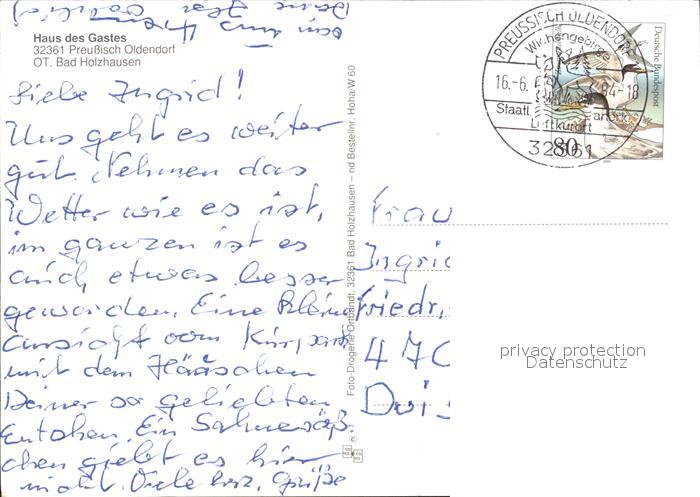 Haus des Gastes
32361 Preußisch Oldendorf
OT. Bad Holzhausen
Liebe Ingrid!
Uns geht es weiter
gut. Nehmen das
Wetter wie es ist,
im ganzen ist es
auch etwas besser
geworden. Eine kleine
ansicht vom Kurpark
mit dem Hääschen
Deiner so geliebten
Entchen. Ein Sahnesöß-
chen giebt es hier
nicht. Viele herz. Grüße
Foto-Drogerie Ortbandt, 32361 Bad Holzhausen – nd Bestellnr. Hoha/W 60
PREUSSISCH OLDENDORF
Wiehengebirge
16.-6. 94-18
Staatl. anerk.
Luftkurort
32361
80
Deutsche Bundespost
Frau
Ingrid
Friedr.
470
Duis
privacy protection
Datenschutz